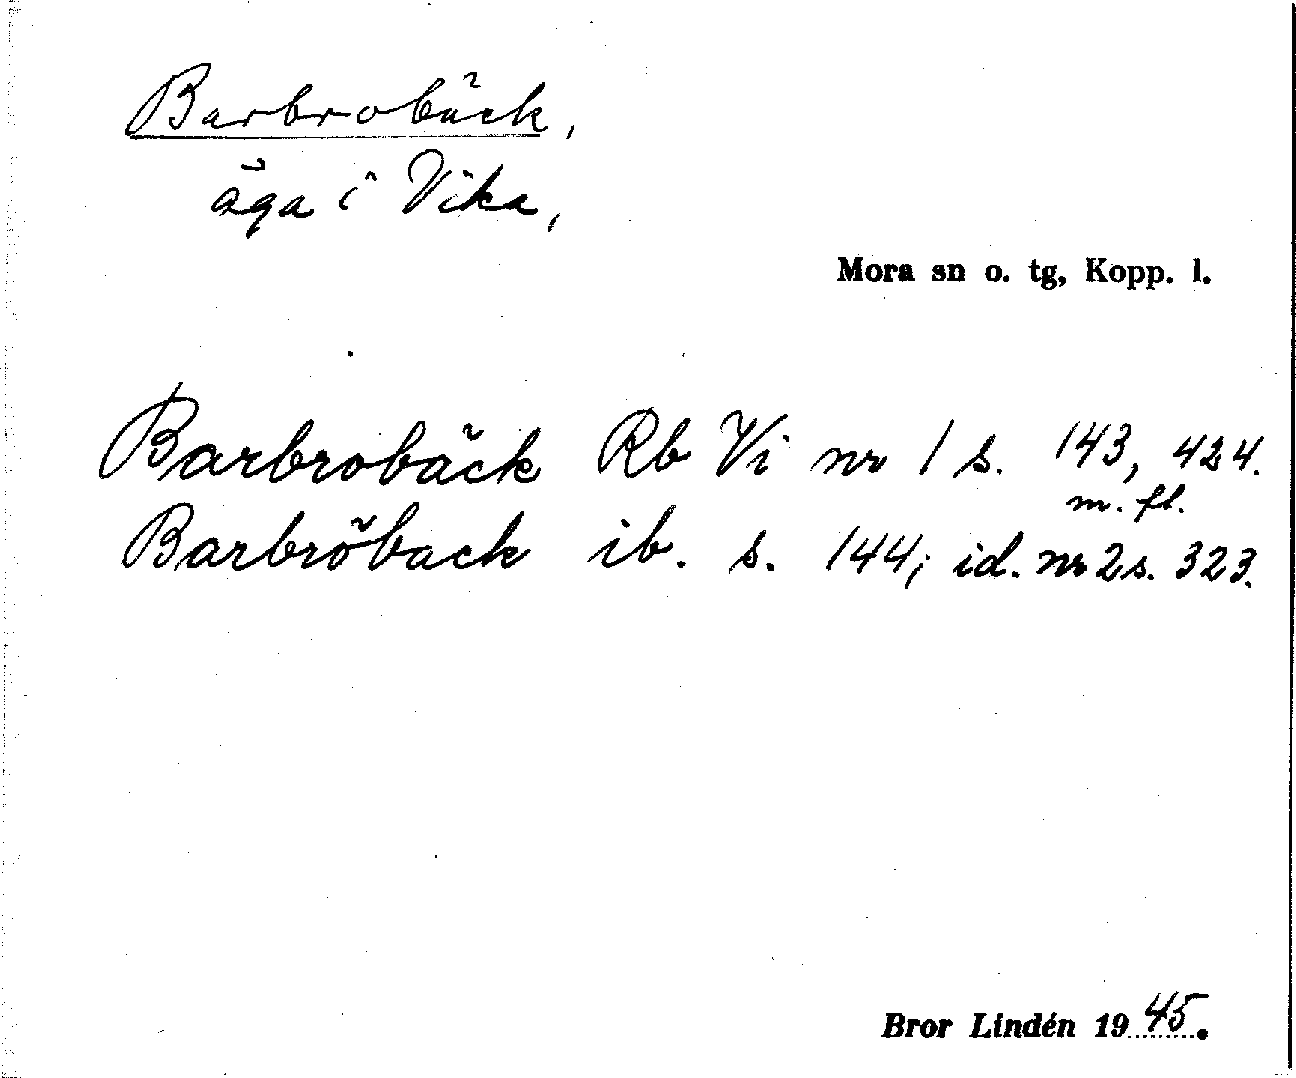 Barbrobäck,
äga i Vika,
Mora sn o. tg, Kopp. l.
Barbrobäck Rb Vi nr 1 s. 143, 424.
m. fl.
Barbröback ib. s. 144; id. nr 2 s. 323.
Bror Lindén 1945.